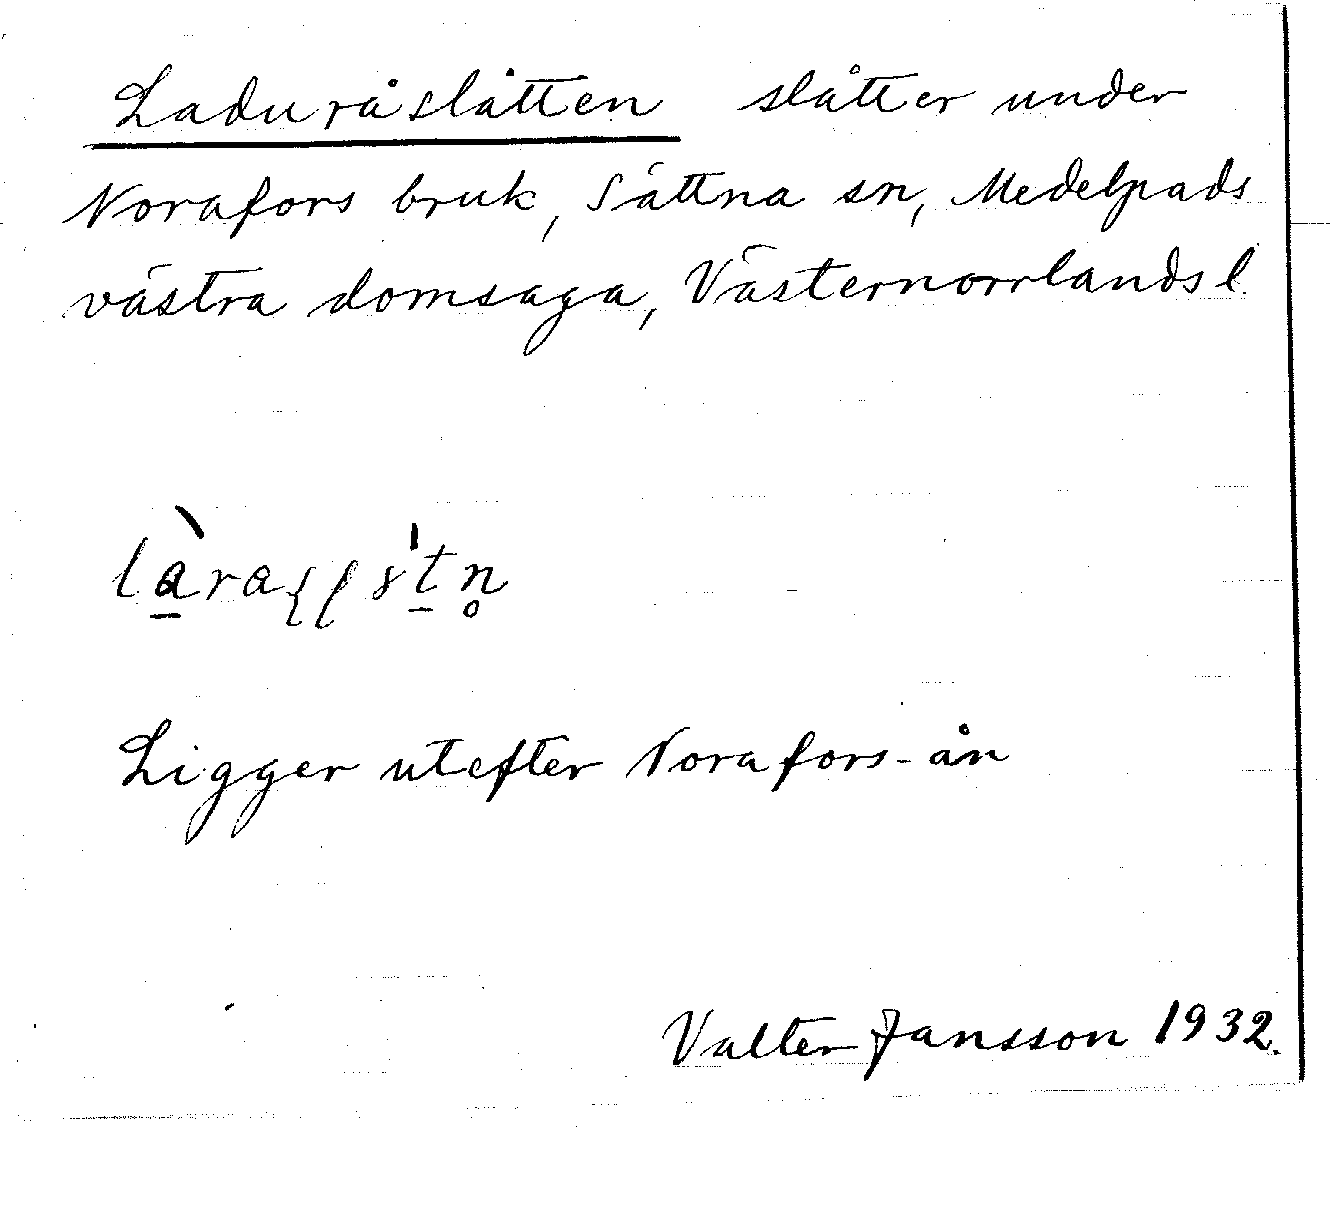 Laduråslåtten slåtter under
Norafors bruk, Sättna sn, Medelpads
västra domsaga, Västernorrlands l.
Ligger utefter Norafors-ån
Valter Jansson 1932.